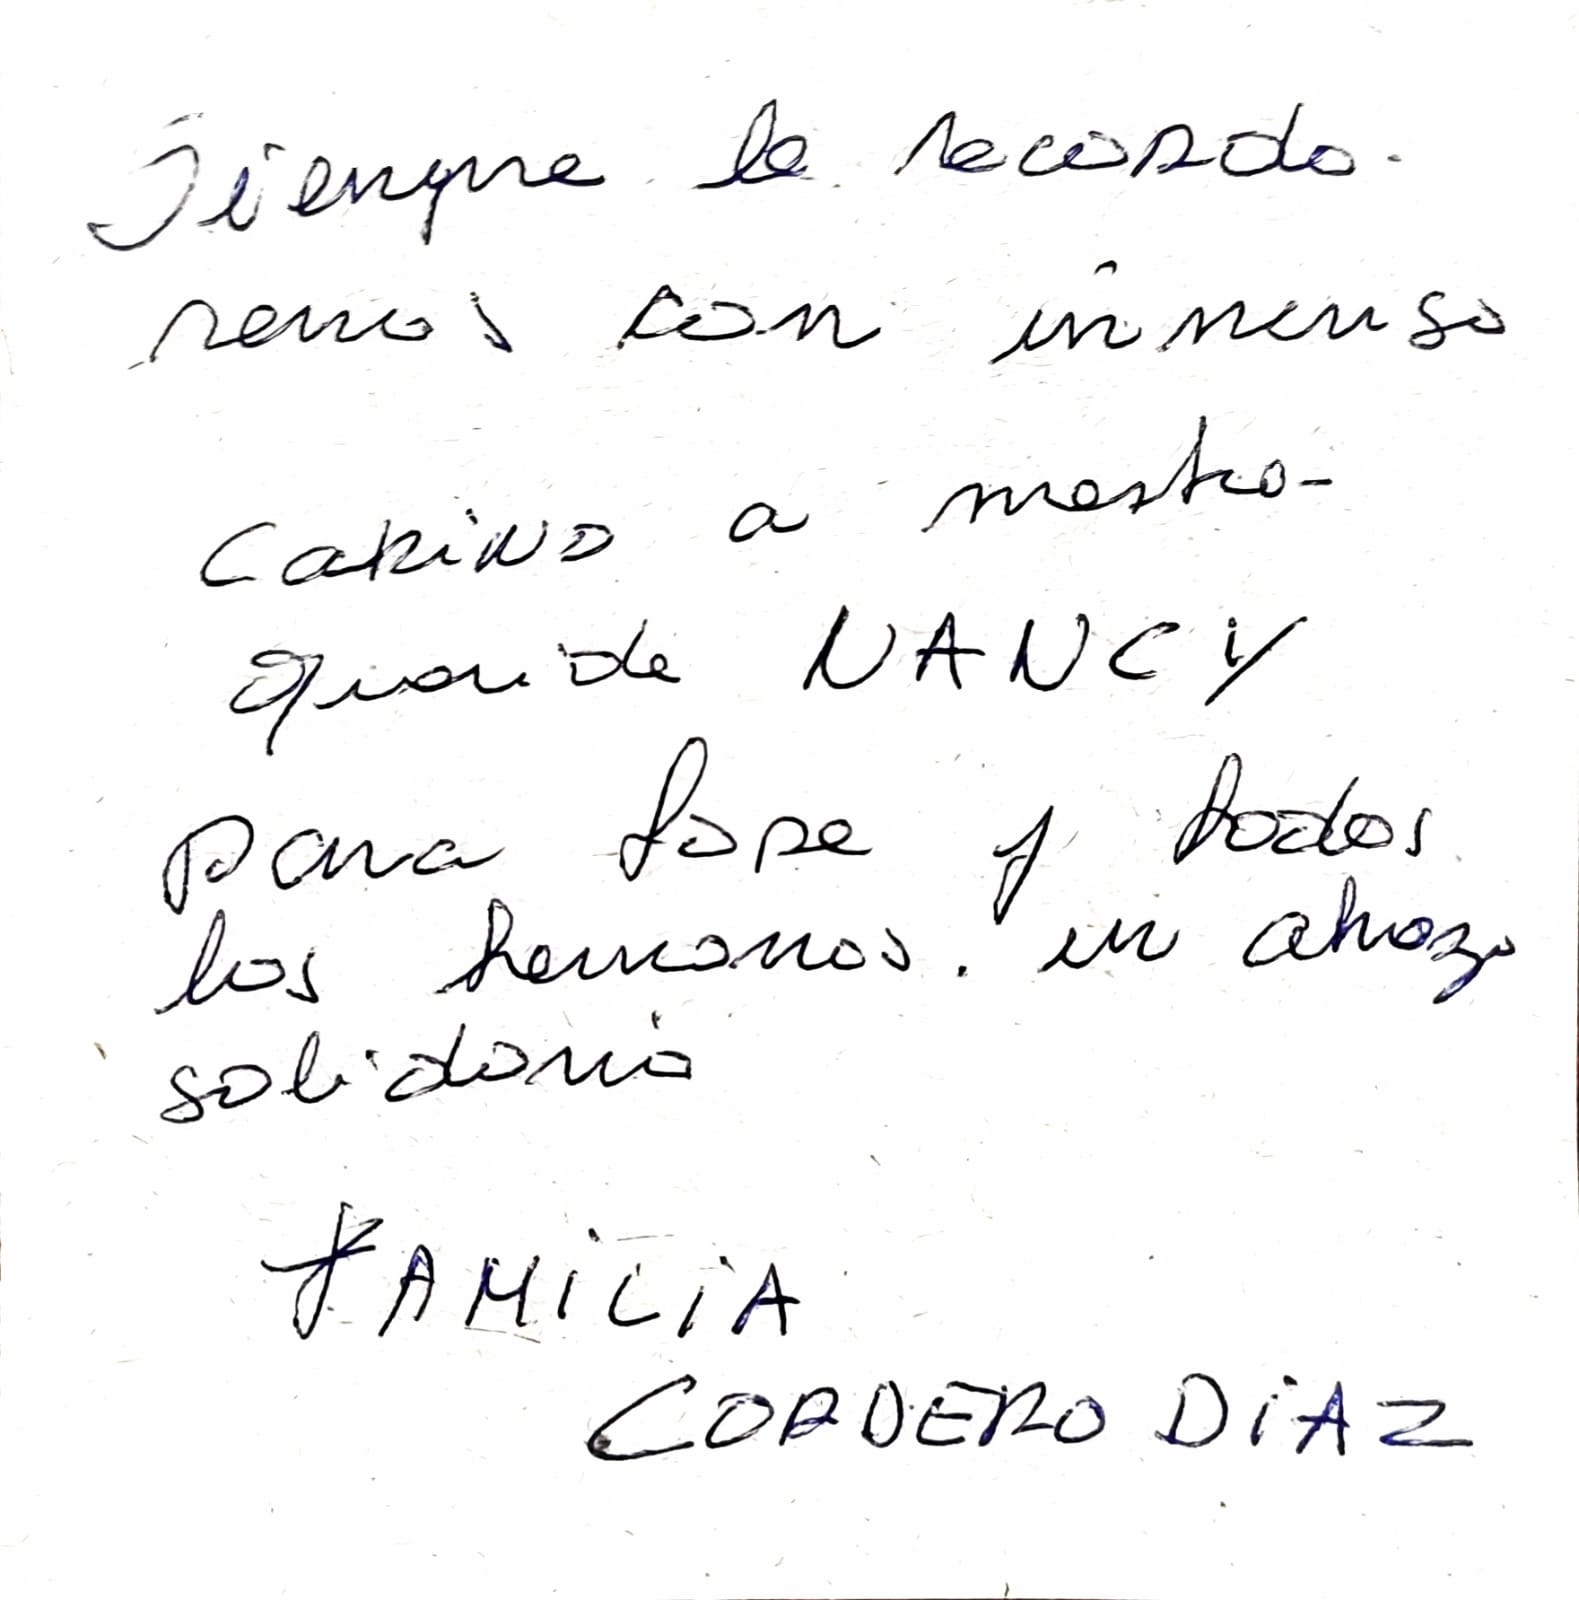 Siempre la recorda-
remos con inmenso
cariño a nuestra
querida NANCY
para Jose y todos
los hermanos. un abrazo
solidario
FAMILIA
CORDERO DIAZ